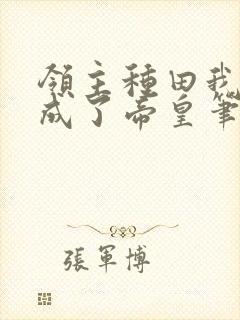 領主種田我
成了帝皇筆
張軍博